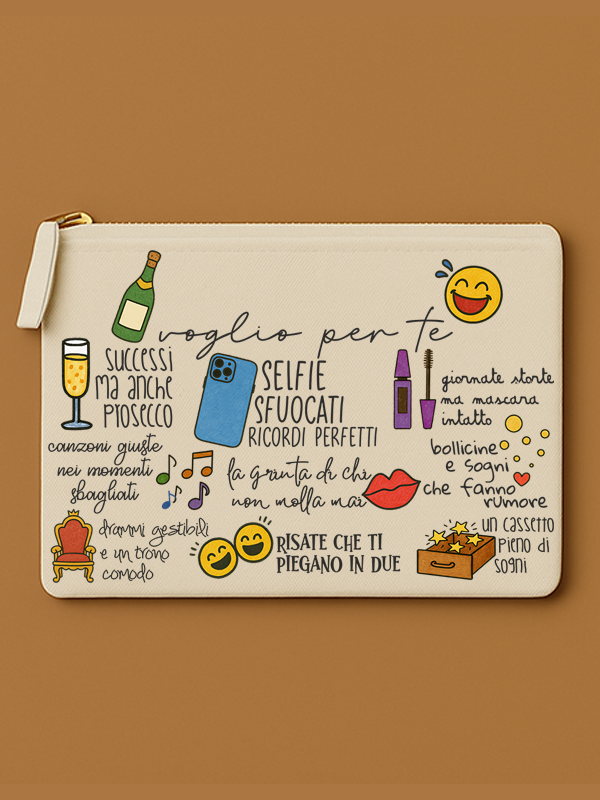 voglio per te
successi
ma anche
prosecco
SELFIE
SFUOCATI
RICORDI PERFETTI
giornate storte
ma mascara
intatto
canzoni giuste
nei momenti
sbagliati
la grinta di chi
non molla mai
bollicine
e sogni
che fanno
rumore
drammi gestibili
e un trono
comodo
RISATE CHE TI
PIEGANO IN DUE
un cassetto
pieno di
sogni